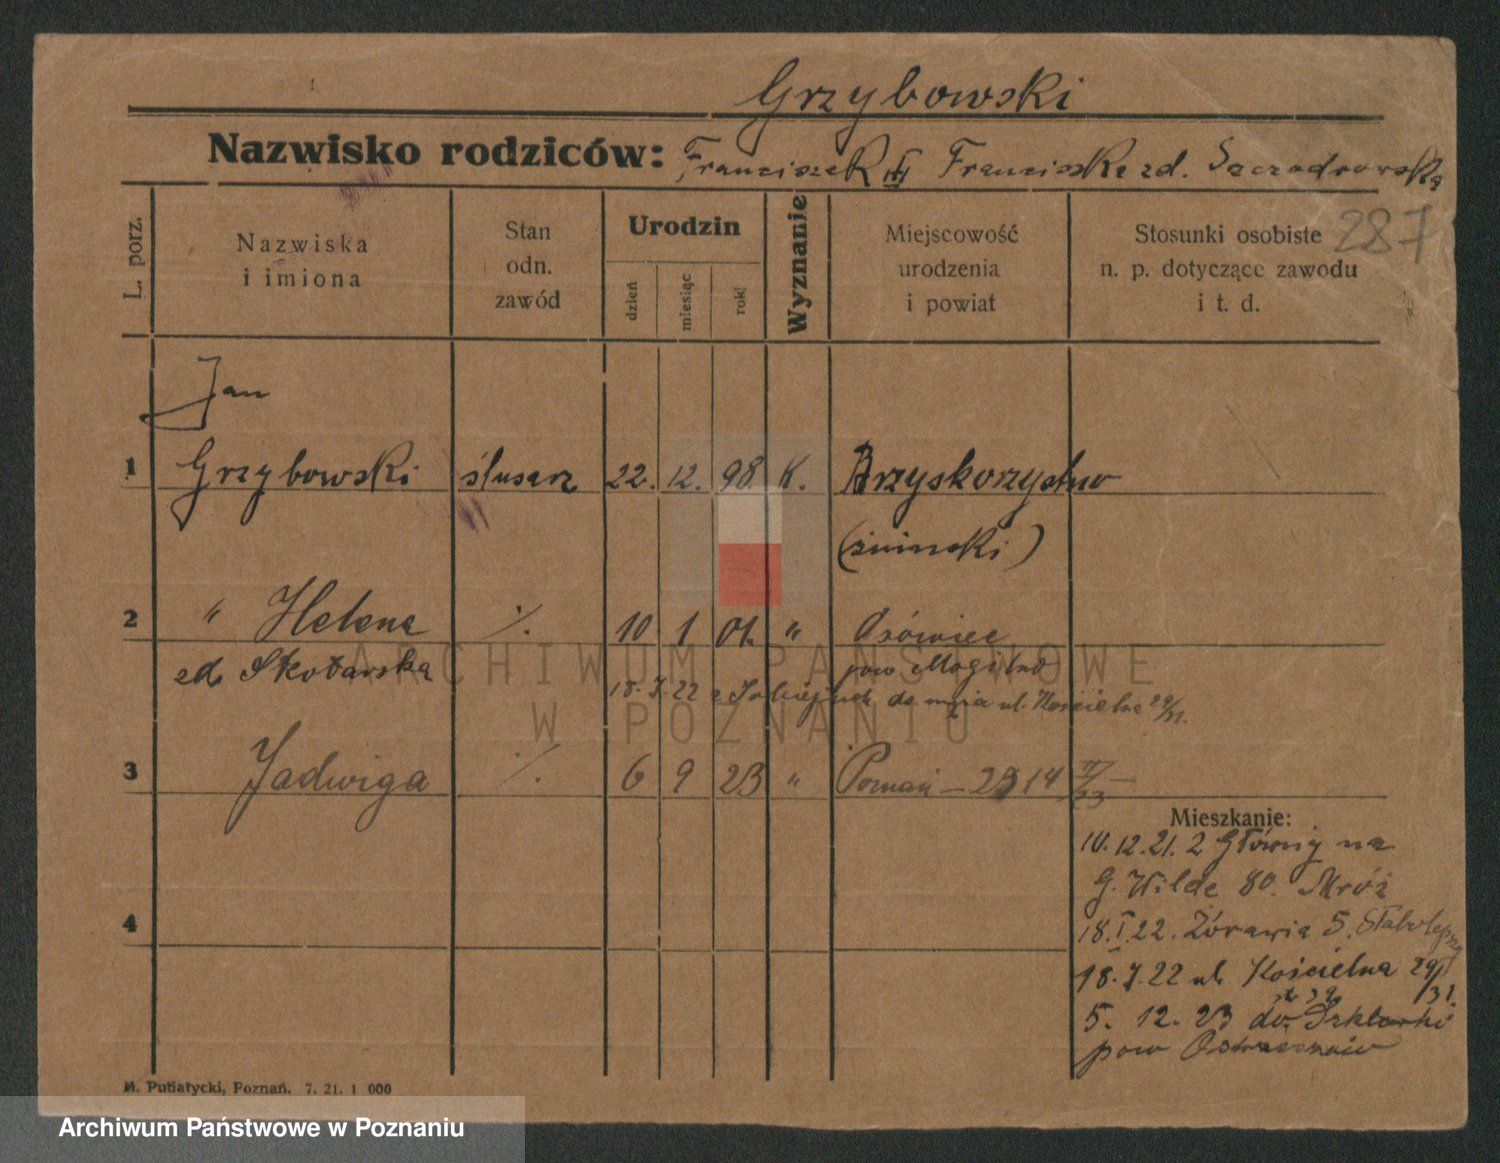 Grzybowski
Nazwisko rodziców: Franciszek III Franciszka zd. Szczodrowska
287
L. porz.
Nazwiska
i imiona
Stan
odn.
zawód
Urodzin
dzień
miesiąc
rok
Wyznanie
Miejscowość
urodzenia
i powiat
Stosunki osobiste
n. p. dotyczące zawodu
i t. d.
Jan
1 Grzybowski ślusarz 22. 12. 98. K. Brzyskorzystno
(żniński)
2 " Helena ./. 10 1 01. " Osówiec
zd. Skotarska pow Mogilno
18. I. 22 z do męża ul. Kościelna 29/31.
3 Jadwiga ./. 6 9 23 " Poznań – 14
Mieszkanie:
10.12.21. z Główny na
G. Wilde 80. Mróz
4
18.I.22. Żórawia 5.
18.I.22 ul. Kościelna 29/31.
5. 12. 23 do Szklarki
pow Ostrzeszów
M. Putiatycki, Poznań. 7. 21. 1 000
ARCHIWUM PAŃSTWOWE
W POZNANIU
Archiwum Państwowe w Poznaniu